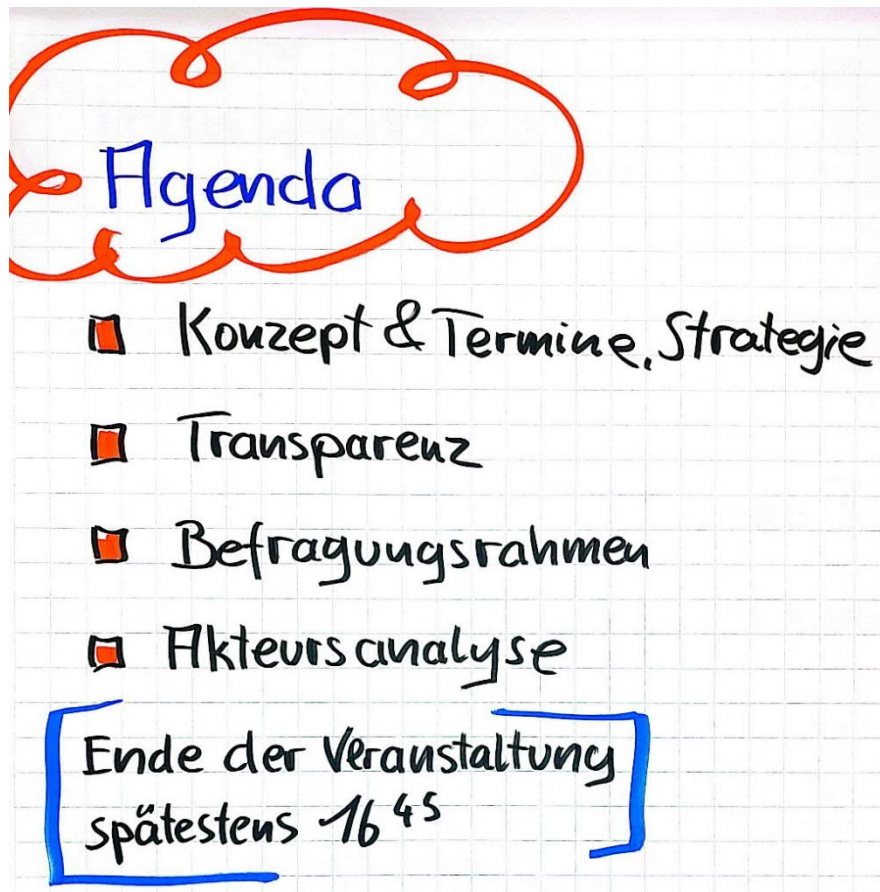 Agenda
Konzept & Termine, Strategie
Transparenz
Befragungsrahmen
Akteursanalyse
Ende der Veranstaltung
spätestens 16⁴⁵